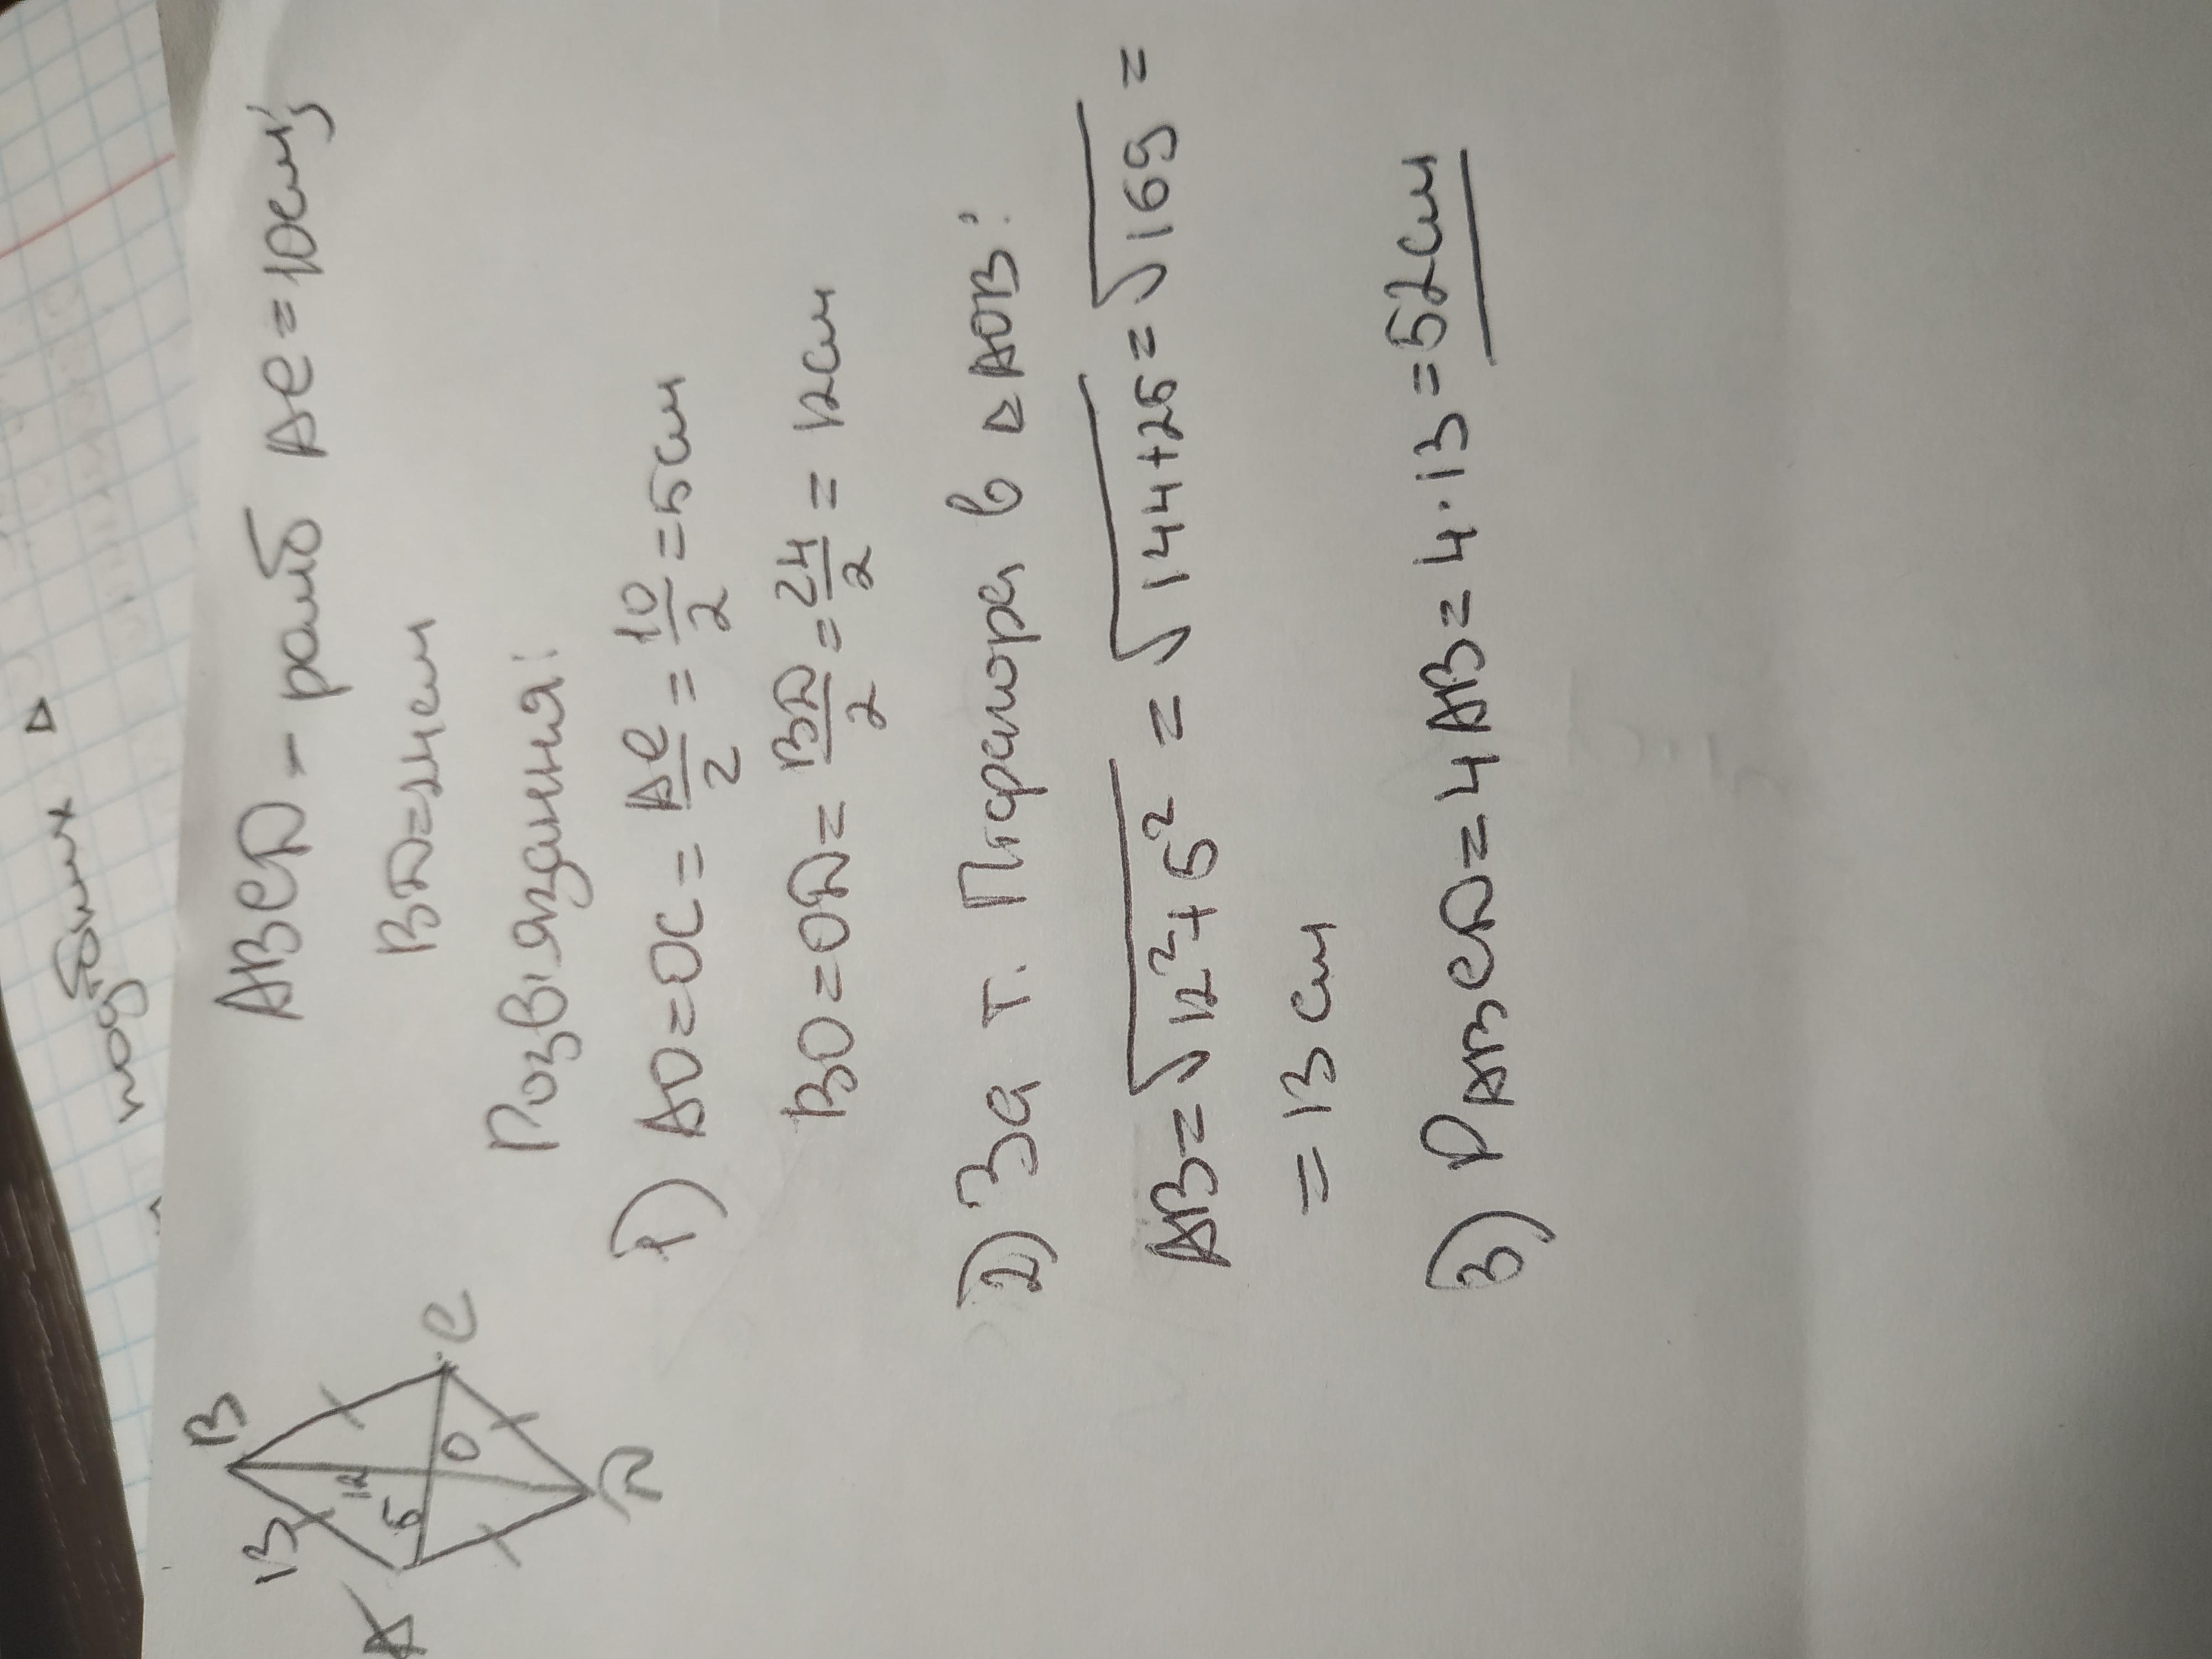 подібних △
ABCD - ромб AC=10см;
BD=24см
Розв'язання:
1) AO=OC=AC/2=10/2=5см
BO=OD=BD/2=24/2=12см
2) За т. Піфагора в △AOB:
AB=√12²+5² = √144+25=√169=
=13 см
3) PABCD=4AB=4·13=52см
B
13
12
5
O
A
C
D